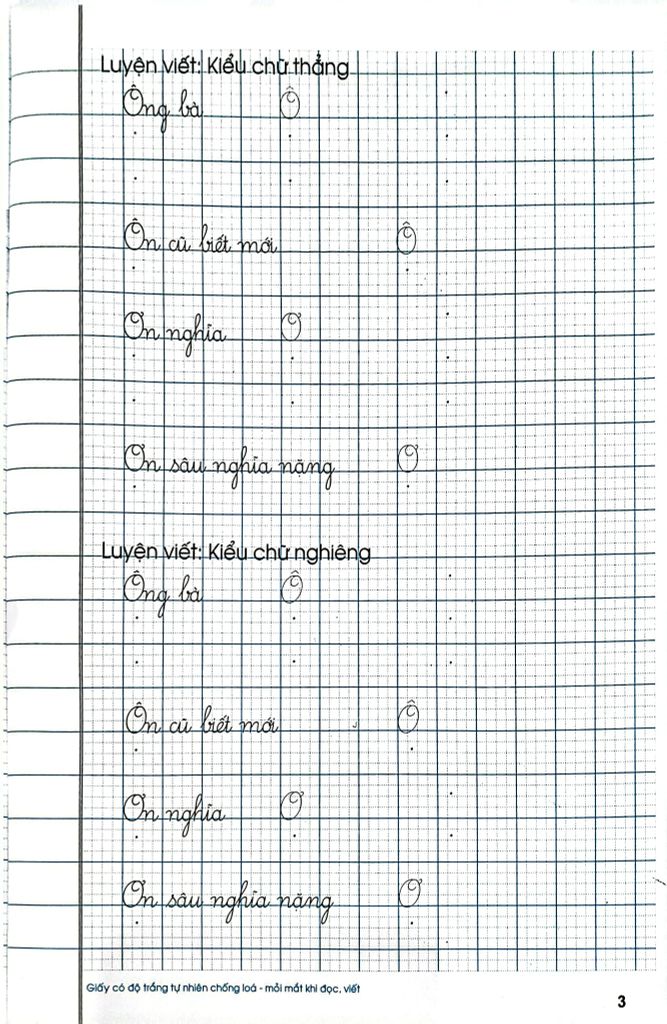 Luyện viết: Kiểu chữ thẳng
Ông bà Ô
Ôn cũ biết mới Ô
Ơn nghĩa Ơ
Ơn sâu nghĩa nặng Ơ
Luyện viết: Kiểu chữ nghiêng
Ông bà Ô
Ôn cũ biết mới Ô
Ơn nghĩa Ơ
Ơn sâu nghĩa nặng Ơ
Giấy có độ trắng tự nhiên chống loá - mỏi mắt khi đọc, viết
3